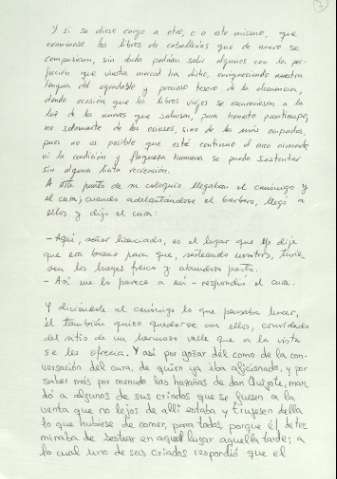 Y si se diese cargo a otro, o a este mismo, que
examinase los libros de caballerías que de nuevo se
compusiesen, sin duda podrían salir algunos con la per-
fección que vuestra merced ha dicho, enriqueciendo nuestra
lengua del agradable y precioso tesoro de la elocuencia,
dando ocasión que los libros viejos se escureciesen a la
luz de los nuevos que saliesen, para honesto pasatiempo,
no solamente de los ociosos, sino de los más ocupados,
pues no es posible que esté continuo el arco armado
ni la condición y flaqueza humana se pueda sustentar
sin alguna lícita recreación.
A este punto de su coloquio llegaban el canónigo y
el cura, cuando adelantándose el barbero, llegó a
ellos y dijo al cura:
- Aquí, señor licenciado, es el lugar que yo dije
que era bueno para que, sesteando nosotros, tuvie-
sen los bueyes fresco y abundoso pasto.
- Así me lo parece a mí - respondió el cura.
Y diciéndole al canónigo lo que pensaba hacer,
él también quiso quedarse con ellos, convidado
del sitio de un hermoso valle que a la vista
se les ofrecía. Y así por gozar dél como de la con-
versación del cura, de quien ya iba aficionado, y por
saber más por menudo las hazañas de don Quijote, man-
dó a algunos de sus criados que se fuesen a la
venta que no lejos de allí estaba y trujesen della
lo que hubiese de comer, para todos, porque él deter-
minaba de sestear en aquel lugar aquella tarde; a
lo cual uno de sus criados respondió que el